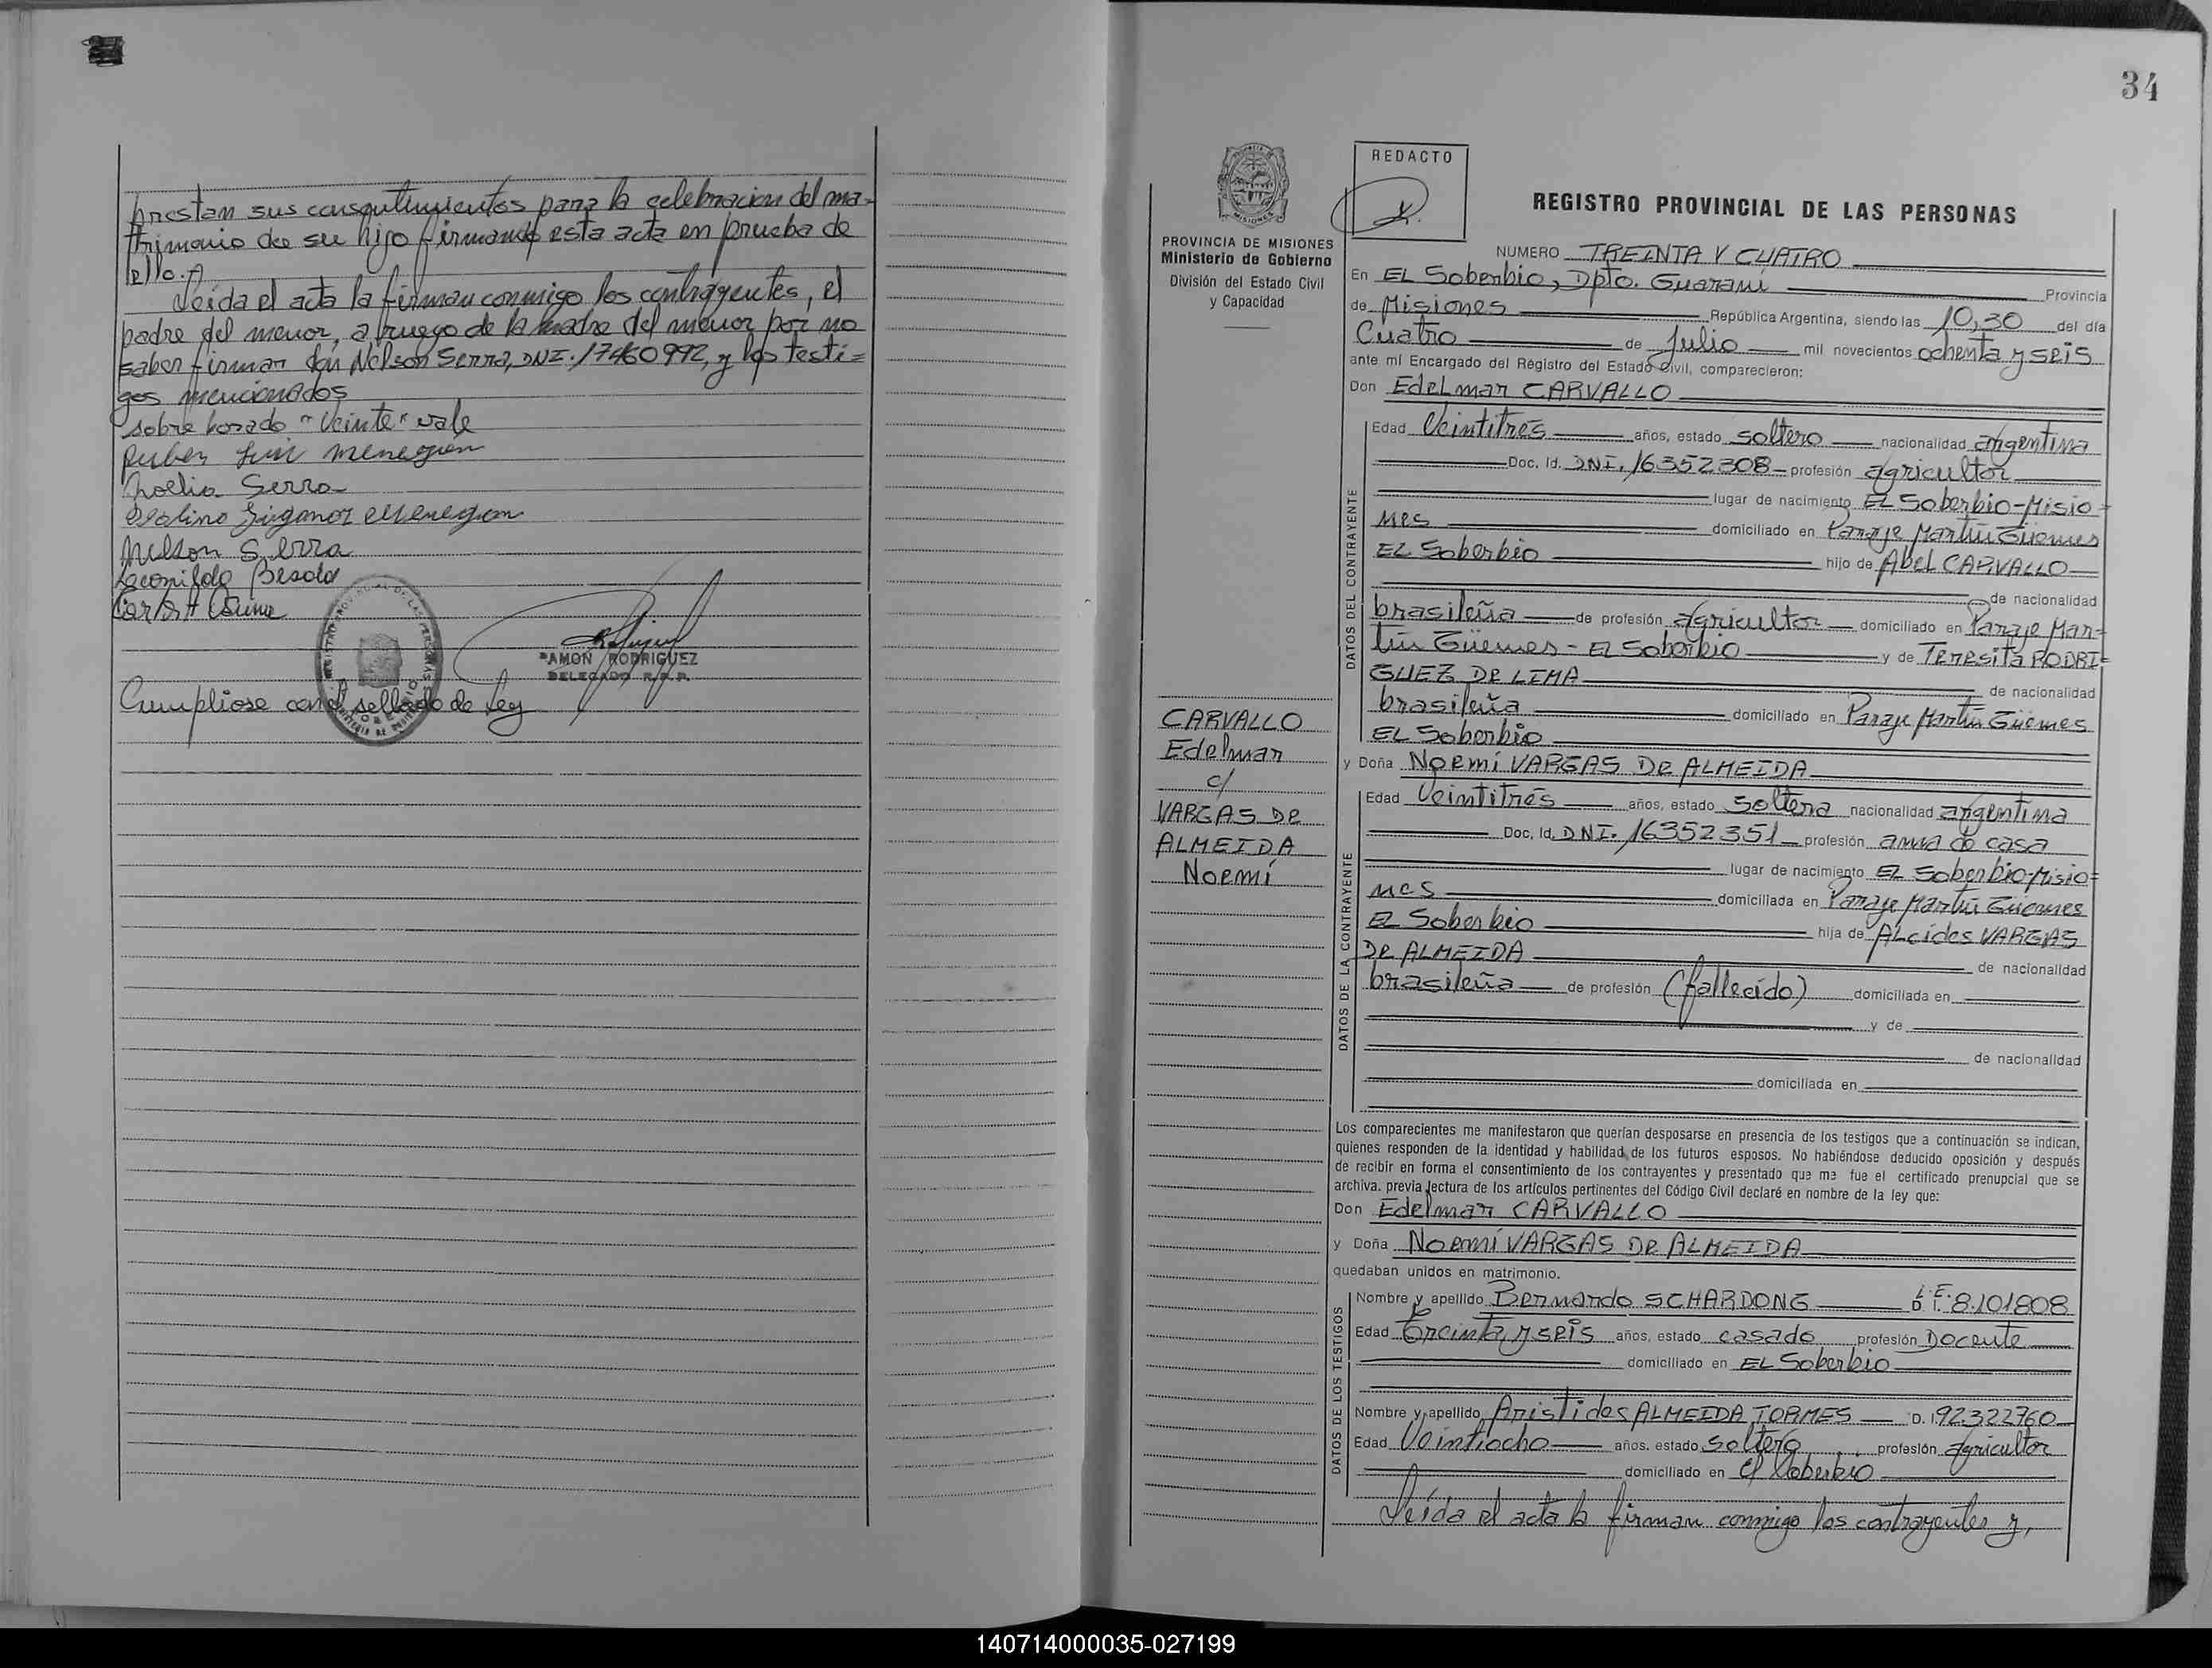 prestan sus consentimientos para la celebracion del ma-
trimonio de su hijo firmando esta acta en prueba de
ello.
Leída el acta la firman conmigo los contrayentes, el
padre del menor, a ruego de la madre del menor por no
saber firmar don Nelson Serra, DNI. 17460992, y los testi=
gos mencionados
sobre borado "veinte" vale
Ruben Luis Menegon
Noelia Serra
Menegon
Nelson Serra
Cumpliose con el sellado de Ley
RAMON RODRIGUEZ
DELEGADO R.P.P.
34
REDACTO
PROVINCIA DE MISIONES
Ministerio de Gobierno
División del Estado Civil
y Capacidad
CARVALLO
Edelmar
c/
VARGAS DE
ALMEIDA
Noemí
REGISTRO PROVINCIAL DE LAS PERSONAS
NUMERO TREINTA Y CUATRO
En EL Soberbio, Dpto. Guaraní Provincia
de Misiones República Argentina, siendo las 10,30 del día
Cuatro de Julio mil novecientos ochenta y seis
ante mí Encargado del Registro del Estado Civil, comparecieron:
Don Edelmar CARVALLO
DATOS DEL CONTRAYENTE
Edad Veintitrés años, estado soltero nacionalidad argentina
Doc. Id. DNI. 16352308 profesión agricultor
lugar de nacimiento EL Soberbio-Misio=
nes domiciliado en Paraje Martín Güemes
EL Soberbio hijo de Abel CARVALLO
de nacionalidad
brasileña de profesión agricultor domiciliado en Paraje Mar=
tín Güemes - EL Soberbio y de Teresita RODRI=
GUEZ DE LIMA de nacionalidad
brasileña domiciliado en Paraje Martín Güemes
EL Soberbio
y Doña Noemí VARGAS DE ALMEIDA
DATOS DE LA CONTRAYENTE
Edad Veintitrés años, estado soltera nacionalidad argentina
Doc. Id. DNI. 16352351 profesión ama de casa
lugar de nacimiento EL Soberbio-Misio=
nes domiciliada en Paraje Martín Güemes
EL Soberbio hija de ALcídes VARGAS
DE ALMEIDA de nacionalidad
brasileña de profesión (fallecido) domiciliada en
y de
de nacionalidad
domiciliada en
Los comparecientes me manifestaron que querían desposarse en presencia de los testigos que a continuación se indican,
quienes responden de la identidad y habilidad de los futuros esposos. No habiéndose deducido oposición y después
de recibir en forma el consentimiento de los contrayentes y presentado que me fue el certificado prenupcial que se
archiva. previa lectura de los artículos pertinentes del Código Civil declaré en nombre de la ley que:
Don Edelmar CARVALLO
y Doña Noemí VARGAS DE ALMEIDA
quedaban unidos en matrimonio.
DATOS DE LOS TESTIGOS
Nombre y apellido Bernardo SCHARDONG L.E. D. I. 8.101808
Edad treinta y seis años, estado casado profesión Docente
domiciliado en EL Soberbio
Nombre y apellido Aristides ALMEIDA TORMES D. I. 92322760
Edad Veintiocho años. estado soltero profesión agricultor
domiciliado en El Soberbio
Leída el acta la firman conmigo los contrayentes y,
140714000035-027199